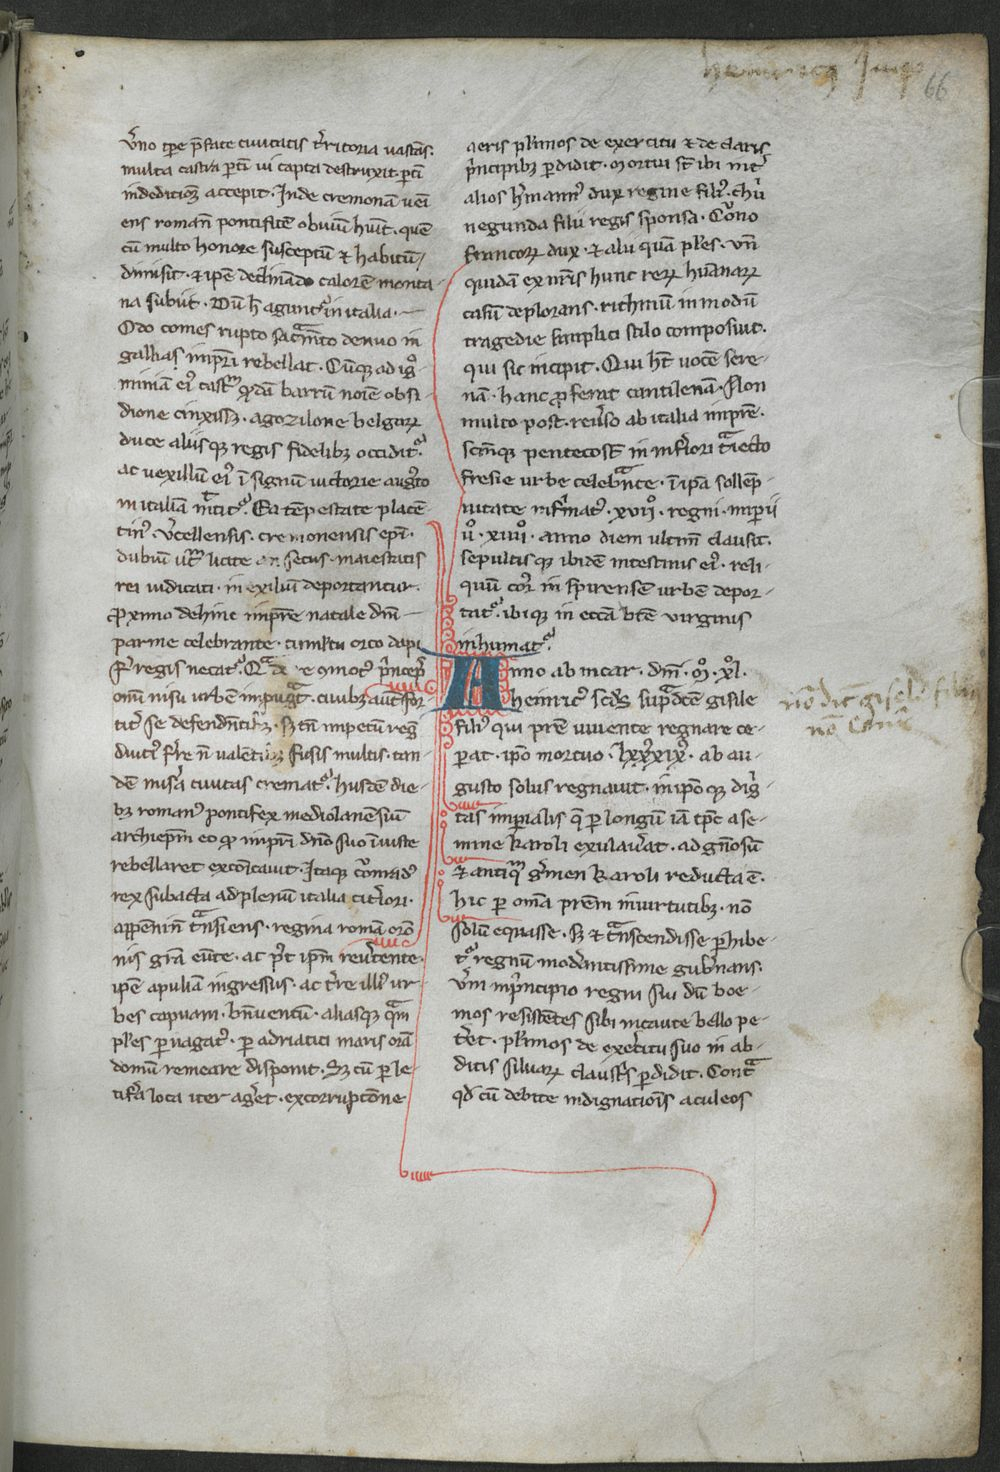 heinricus Imp
66
v̄no tp̄e p̄fate ciuitatis t̓ritoria uastās.
multa castra ꝑtī ui capta destruxit ꝑtī
indeditiōꝫ accepit. Inde cremonā ueī
ens romanū pontificē obuiū hūit. quē
cū multo honore susceptū ⁊ habitū
dimisit. ⁊ ip̄e declinando calorē monta
na subiit. Dū h̄ agunt᷑ in italia.
Odo comes rupto sac̄mto denuo in
gallias imp̄ri rebellat. Cūqꝫ ad ig
miniā ei᷒ castrū q̄dā barrū noīe obsi
dione cinxissꝫ. a gozilone belgaꝝ
duce aliisqꝫ regis fidelibꝫ occidit᷑.
ac uexillū ei᷒ ī signū uictorie augto
in italiā mittit᷑. Ea tēpestate placē
tin᷒. v̓cellensis. cremonensis ep̄i.
dubiū utꝝ licite an secus. maiestatis
rei iudicati. in exiliū deportantur.
Proximo dehinc imp̄re natale dn̄i
parme celebrante. tumltu orto dapi
fer regis necat᷑. Qua de re cōmot᷒ p̄nceps
omī nisu urbē impugt. ciuibꝫ aut for
tit̓ se defendentibꝫ. Sꝫ tn̄ impetū reg̓
diuti᷒ fr̄e n̄ ualentibꝫ fusis multis. tan
dē misa ciuitas cremat᷑. hisdē die
bꝫ roman᷒ pontifex mediolanēsiū
archiep̄m eo qđ imp̄ri dn̄o suo iniuste
rebellaret excōicauit. Itaqꝫ cōnrad᷒
rex subacta ad plenū italia cit̓iori.
appeninū t̄nsiens. regina romā orō
nis grā eūte. ac pt ip̄m reuertente.
ip̄e apuliā ingressus. ac t̓re illi᷒ ur
bes capuam. bn̄uentū. aliasqꝫ q̄m
plēs ꝑuagat᷒. ꝑ adriatici maris orā
domū remeare disponit. Sꝫ cū ꝑ le
tifera loca iter aget. ex corruptiōne
aeris plimos de exercitu ⁊ de claris
p̄ncipibꝫ ꝑdidit. Mortui sꝉ ibi int̓
alios h̓mann᷒ dux regine fili᷒. chū
negunda filii regis sponsa. Cōno
francoꝝ dux. ⁊ alii quā plēs. Vn̄
quidā ex nr̄is hunc reꝝ hūanaꝝ
casū deplorans. rithmū in modū
tragedie simplici stilo composuit.
qui sic incipit. Qui hꝫ uocē sere
nā. hanc ꝓferat cantilenā. Non
multo post. reuso ab italia impr̄e.
scāmqꝫ pentecosꝉ in inf̓iori t̄iecto
fresie urbe celebn̄te. ī ipa sollēp
nitate infirmat᷒. xviiº. regni. imperii
ūº. xiiiiº. anno diem ultimū clausit.
sepultisqꝫ ibidē intestinis ei᷒. reli
quū corꝑ in spirensē urbē depor
tat᷑. ibiqꝫ in eccā bte virginis
inhumat᷑.
Anno ab incar. dn̄i. ⁊. Mº. xl.
heinric᷒ scd̄s. sup̄dcē gisile
fili᷒ qui pr̄e uiuente regnare ce
ꝑat. ip̄o mortuo. lxxxix. ab au
gusto solus regnauit. in ip̄oqꝫ dig
tas imp̄ialis q̄ ꝑ longū iā tp̄c a se
mine karoli exulauat. ad gn̄osū
⁊ antiquū g̓men karoli reducta ē.
hic ꝑ omīa prēm in uirtutibꝫ. nō
solū equasse. Sꝫ ⁊ t̄nscendisse ꝑhibe
t᷑ regnū mod̓antissime gub̓nans.
Vm̄ in p̄ncipio regni sui dū boe
mos resistētes sibi incaute bello pe
tet. plimos de exercitu suo in ab
ditis siluaꝝ claustris ꝑdidit. Contra
qđ cū debite indignatiōis aculeos
nō dic̄ gisele fili